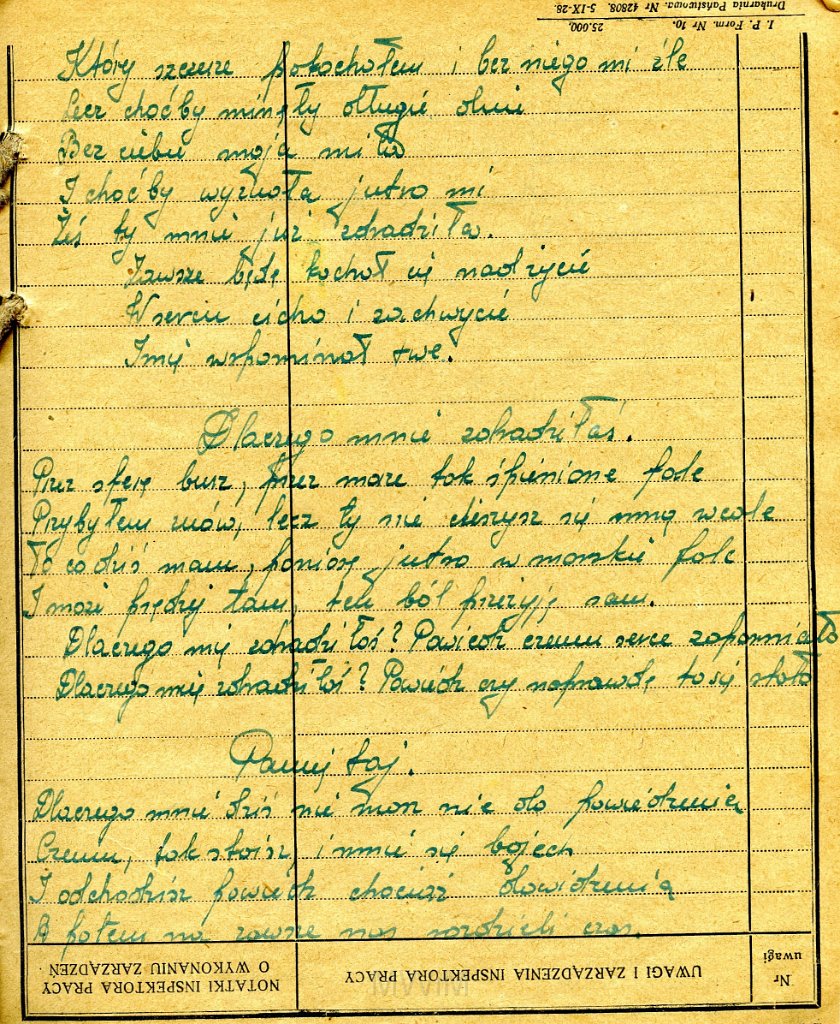 I. P. Form. Nr 10. 25.000.
Drukarnia Państwowa. Nr 42808. 5-IX-28.
Który szczerze pokochałem i bez niego mi źle
Lecz choćby minęły długie dnie
Bez ciebie moja miła
I choćby wyznała jutro mi
Żeś ty mnie już zdradziła.
Zawsze będę kochał cię nad życie
W sercu cicho i zachwycie
Imię wspominał twe.
Dlaczego mnie zdradziłaś.
Przez sferę burz, przez morze tak spienione fale
Przybyłem znów, lecz ty nie cieszysz się mną wcale
To co dziś mam, poniosę jutro w morskie fale
I może prędzej tam, ten ból przeżyję sam.
Dlaczego mię zdradziłaś? Powiedz czemu serce zapomniało
Dlaczego mię zdradziłaś? Powiedz czy naprawdę to się stało
Pamiętaj.
Dlaczego mnie dziś nie masz nic do powiedzenia
Czemu, tak stoisz, i mnie się
I odchodzisz powiedz chociaż dowidzenia
A potem na zawsze nas rozdzieli czas.
NOTATKI INSPEKTORA PRACY
O WYKONANIU ZARZĄDZEŃ
UWAGI I ZARZĄDZENIA INSPEKTORA PRACY
Nr
uwagi